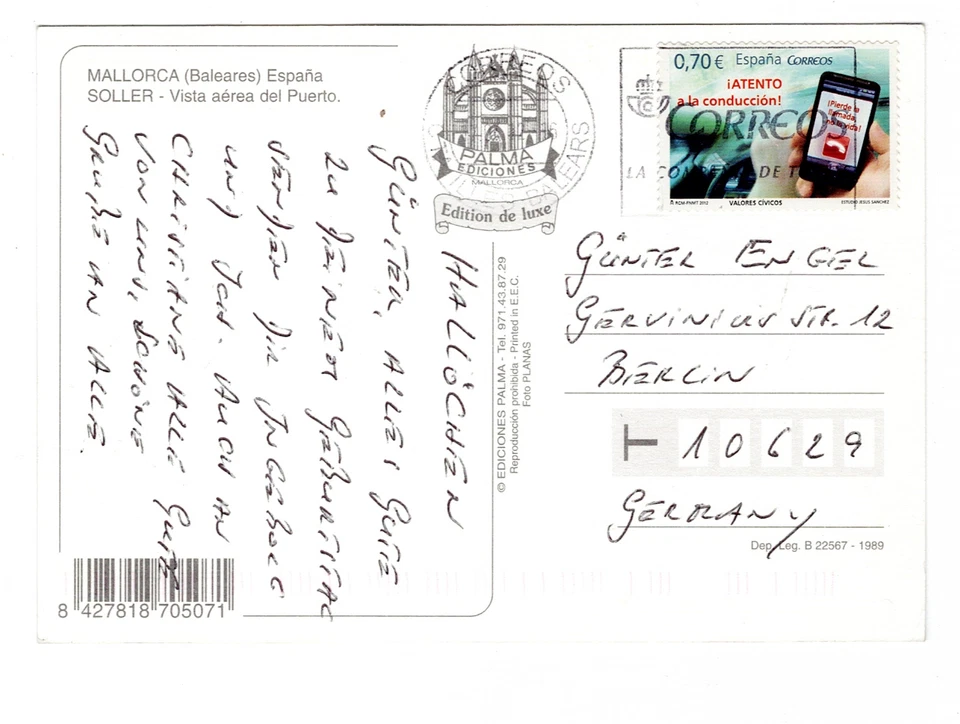 MALLORCA (Baleares) España
SOLLER - Vista aérea del Puerto.
CORREOS
BALEARS
PALMA
EDICIONES
MALLORCA
Edition de luxe
0,70 € España CORREOS
¡ATENTO
a la conducción!
¡Pierde la
llamada,
no la vida!
CORREOS
LA DE
© RCM-FNMT 2012 VALORES CÍVICOS ESTUDIO JESUS SANCHEZ
HALLÖCHEN
GÜNTER, ALLES GUTE
ZU DEINEM GEBURTSTAG
SENDEN DIR INGEBORG
UND AUCH AN
CHRISTIANE ALLE GUTE
VON UNS, SCHÖNE
GRÜßE AN ALLE.
© EDICIONES PALMA - Tel. 971.43.87.29
Reproducción prohibida - Printed in E.E.C.
Foto PLANAS
GÜNTER ENGEL
GERVINIUS STR. 12
BERLIN
T 10629
GERMANY
Dep. Leg. B 22567 - 1989
8 427818 705071